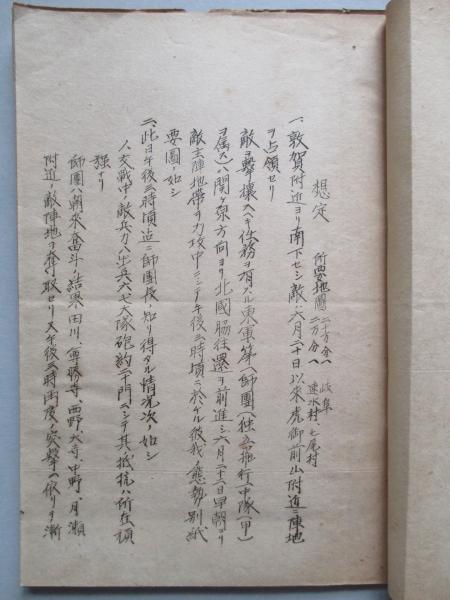 想定
所要地圖 二十万分一 岐阜
二万分一 速水村、七尾村
一、敦賀附近ヨリ南下セシ敵ハ六月二十日以来虎御前山附近ニ陣地
ヲ占領セリ
敵ヲ撃攘スヘキ任務ヲ有スル東軍第一師團(独立拖行中隊(甲)
ヲ属ス)ハ関ヶ原方向ヨリ北國脇往還ヲ前進シ六月二十二日早朝ヨリ
敵主陣地帯ヲ力攻中ニシテ午後三時頃ニ於ケル彼我ノ態勢別紙
要圖ノ如シ
二、此日午後三時頃迄ニ師團長ノ知リ得タル情況次ノ如シ
1、交戦中ノ敵兵力ハ歩兵六七大隊砲約二十門ニシテ其ノ抵抗ハ所在頑
強ナリ
師團ハ朝来奮斗ノ結果田川、尊勝寺、西野、大寺、中野、月瀬
附近ノ敵陣地ヲ奪取セリ又午後三時両度ノ突撃ニ依リ漸